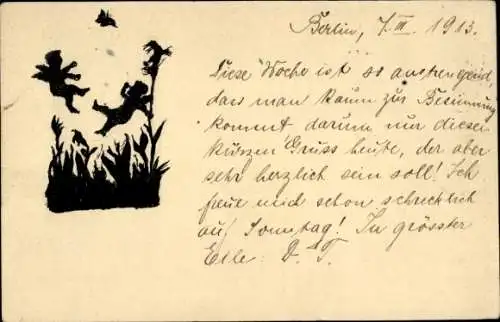 Berlin, 7. III. 1913.
Diese Woche ist so anstrengend,
dass man kaum zur Besinnung
kommt darum nur diesen
kurzen Gruss heute, der aber
sehr herzlich sein soll! Ich
freue mich schon schrecklich
auf Sonntag! In grösster
Eile. D. T.